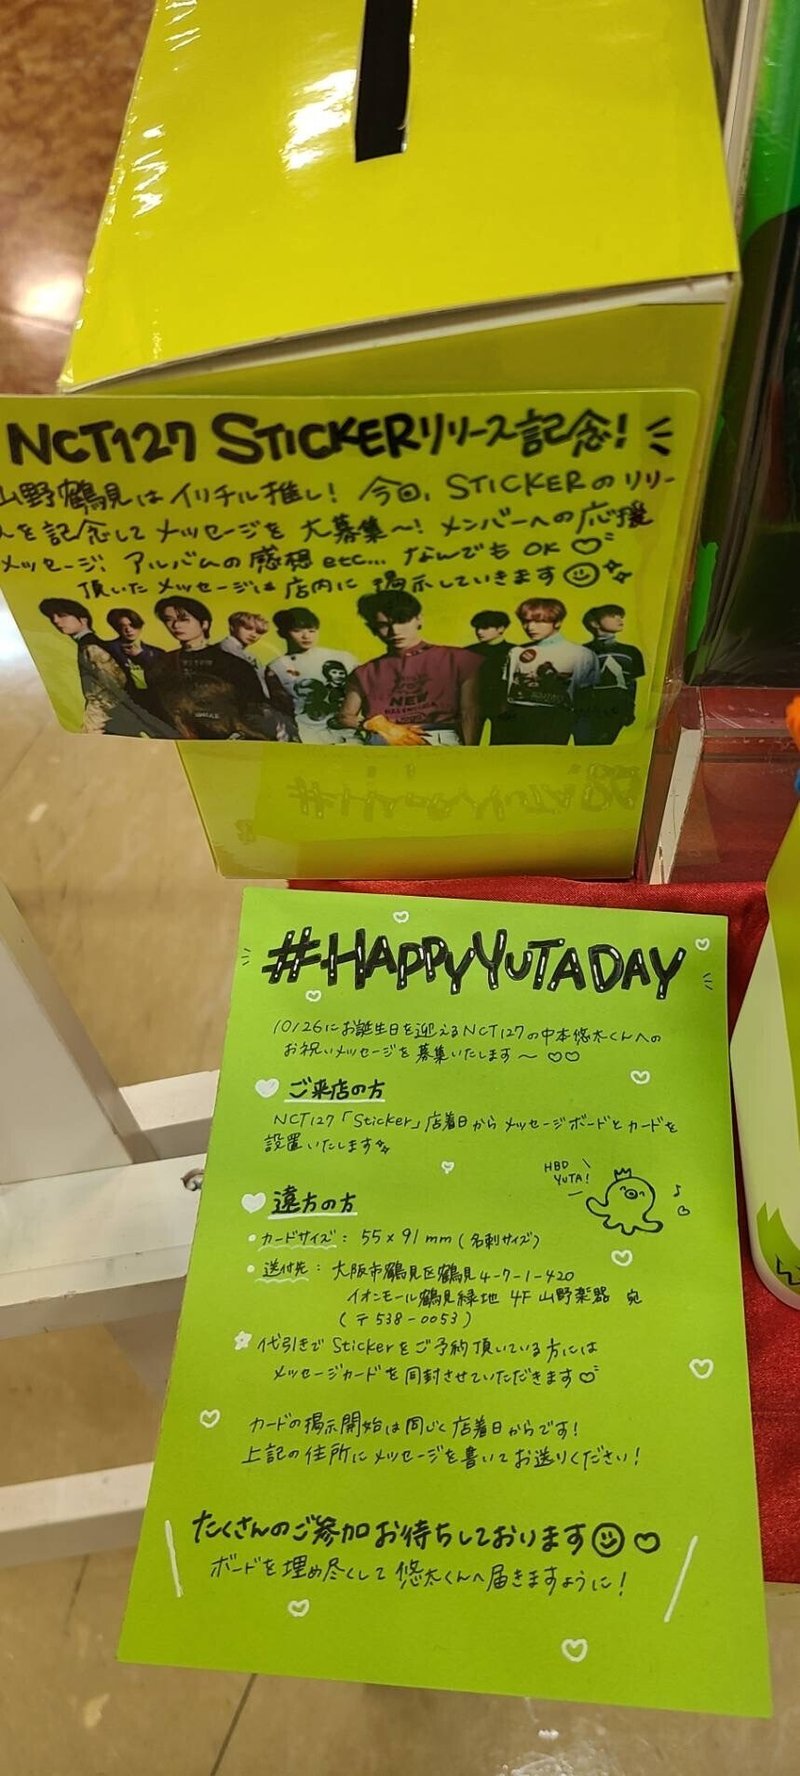 NCT127 STICKERリリース記念!
山野鶴見はイリチル推し! 今回、STICKERのリリー
スを記念してメッセージを大募集〜! メンバーへの応援
メッセージ、アルバムの感想etc... なんでもOK♡
頂いたメッセージは店内に掲示していきます☺
NEW
#HAPPYYUTADAY
10/26にお誕生日を迎えるNCT127の中本悠太くんへの
お祝いメッセージを募集いたします〜♡♡
ご来店の方
NCT127「Sticker」店着日からメッセージボードとカードを
設置いたします
HBD
YUTA!
遠方の方
・カードサイズ: 55×91mm(名刺サイズ)
・送付先: 大阪市鶴見区鶴見4-7-1-420
イオンモール鶴見緑地 4F 山野楽器 宛
(〒538-0053)
☆代引きでStickerをご予約頂いている方には
メッセージカードを同封させていただきます♡
カードの掲示開始は同じく店着日からです!
上記の住所にメッセージを書いてお送りください!
たくさんのご参加お待ちしております☺♡
ボードを埋め尽くして悠太くんへ届きますように!